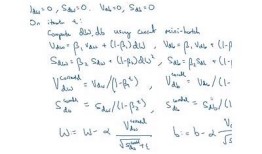 V_dw = 0, S_dw = 0. V_db = 0, S_db = 0
On iteration t:
Compute dW, db using current mini-batch
V_dw = β₁ V_dw + (1-β₁) dW , V_db = β₁ V_db + (1-β
S_dw = β₂ S_dw + (1-β₂) dW² , S_db = β₂ S_db + (1-β
V_dw^corrected = V_dw / (1-β₁^t) , V_db = V_db / (1-
S_dw^corrected = S_dw / (1-β₂^t) , S_db^corrected = S_db / (1-
W := W - α V_dw^corrected / √S_dw^corrected + ε b := b - α